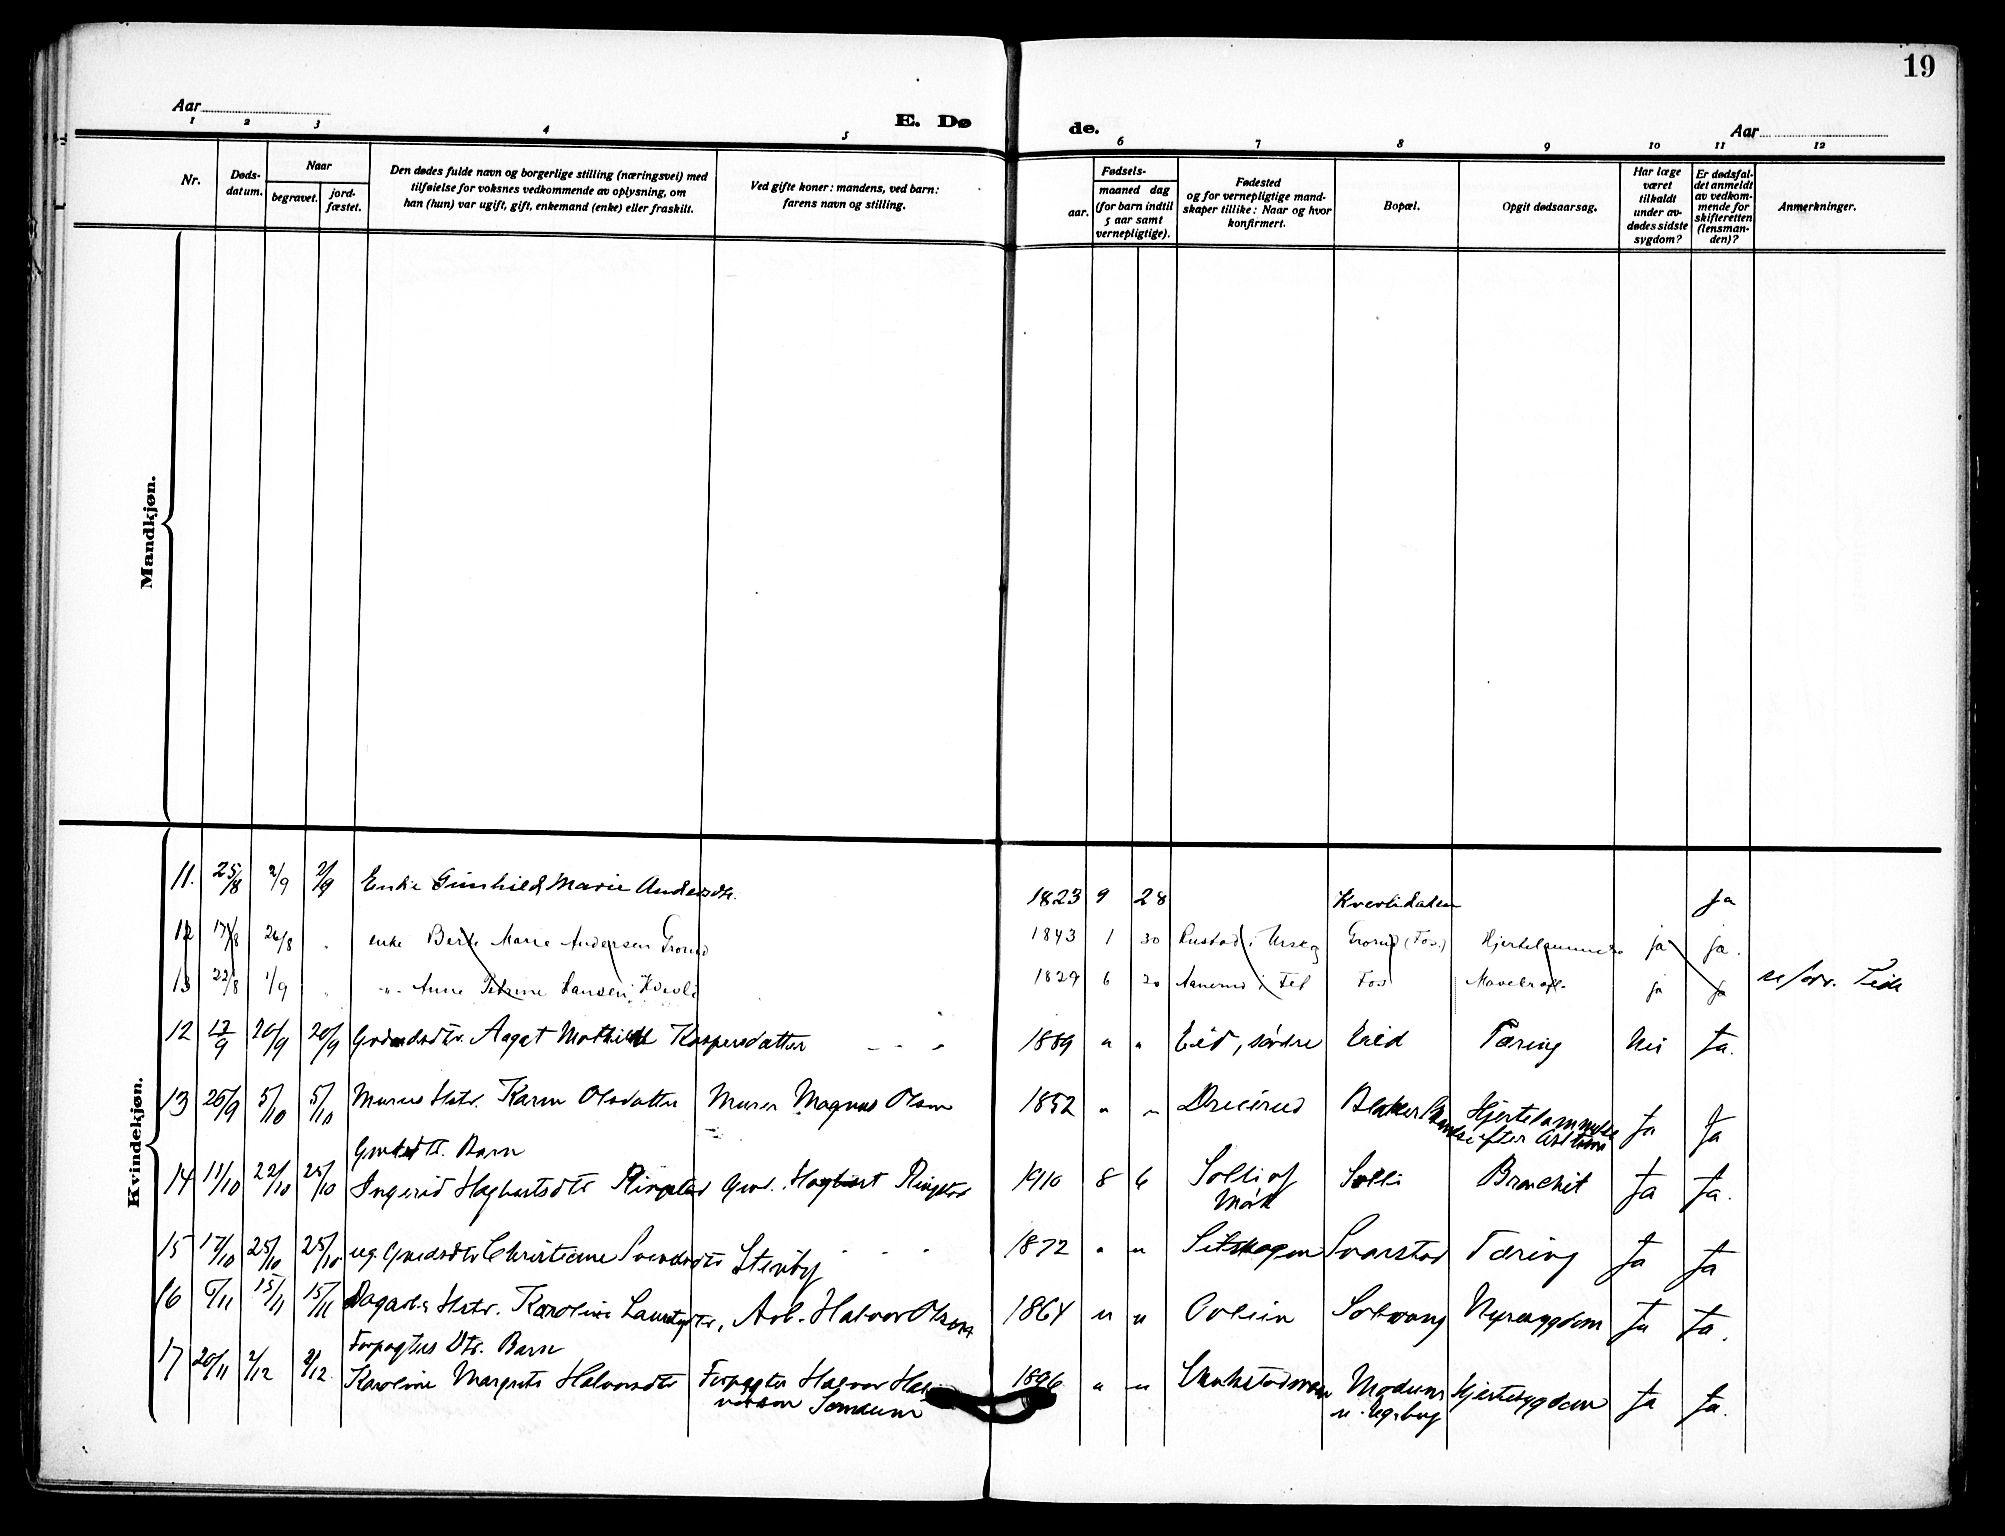 19
Aar
E. Dø de.
Aar
1 2 3 4 5 6 7 8 9 10 11 12
Nr.
Døds-
datum.
Naar
begravet.
jord-
fæstet.
Den dødes fulde navn og borgerlige stilling (næringsvei) med
tilføielse for voksnes vedkommende av oplysning, om
han (hun) var ugift, gift, enkemand (enke) eller fraskilt.
Ved gifte koner: mandens, ved barn:
farens navn og stilling.
Fødsels-
aar.
maaned dag
(for barn indtil
5 aar samt
vernepligtige).
Fødested
og for vernepligtige mand-
skaper tillike: Naar og hvor
konfirmert.
Bopæl.
Opgit dødsaarsag.
Har læge
været
tilkaldt
under av-
dødes sidste
sygdom?
Er dødsfal-
det anmeldt
av vedkom-
mende for
skifteretten
(lensman-
den)?
Anmerkninger.
Mandkjøn.
Kvindekjøn.
11. 25/8 2/9 2/9 Enke Gunhild Marie Andersdtr. 1823 9 28 ja
12 17/8 26/8 " enke Berte Marie Andersen Grorud 1843 1 30 Rustad i Urskog Grorud (Fos) ja ja.
13 22/8 1/9 " -"- Anne Petrine Hansen 1829 6 20 Fet Fos ja ja
12 12/9 20/9 20/9 Aagot Mathilde Kaspersdatter - - " 1889 " " Eid, søndre Eid Tæring Nei Ja.
13 26/9 5/10 5/10 Murers Hstr. Karen Olsdatter Murer Magnus Olsen 1852 " " Blaker Hjertelammelse
efter Ja Ja
Barn
14 11/10 22/10 25/10 Ingerid Hagbartsdtr Ringstad Hagbart Ringstad 1910 8 6 Solli af
Mørk Solli Bronchit Ja Ja.
15 17/10 25/10 25/10 ug. Christiane Stenby - - - 1872 " " Setskogen Svarstad Tæring Ja Ja
16 6/11 15/11 15/11 Hstr. Karoline Arb. Halvor Olsen 1864 " " Solvang Nyresygdom Ja Ja.
Forpagters Dtr. Barn
17 20/11 2/12 2/12. Karoline Margrete Halvorsdtr Forpagter Halvor Hal-
vorsen 1896 " " Hjertesygdom Ja Ja.